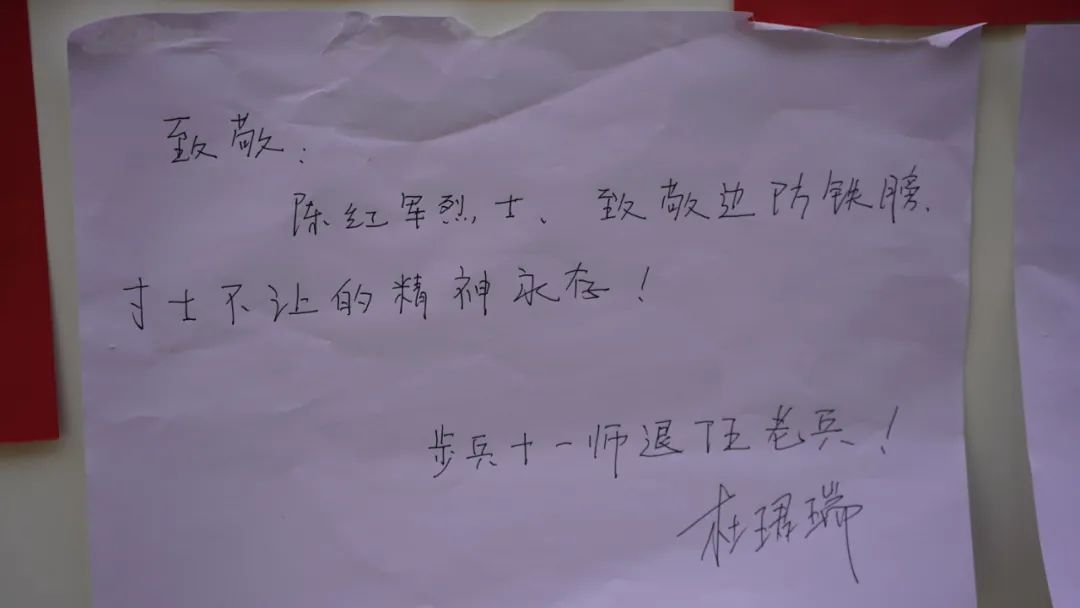 致敬:
陈红军烈士、致敬边防铁膀、
寸土不让的精神永存!
步兵十一师退伍老兵!
杜珺瑞